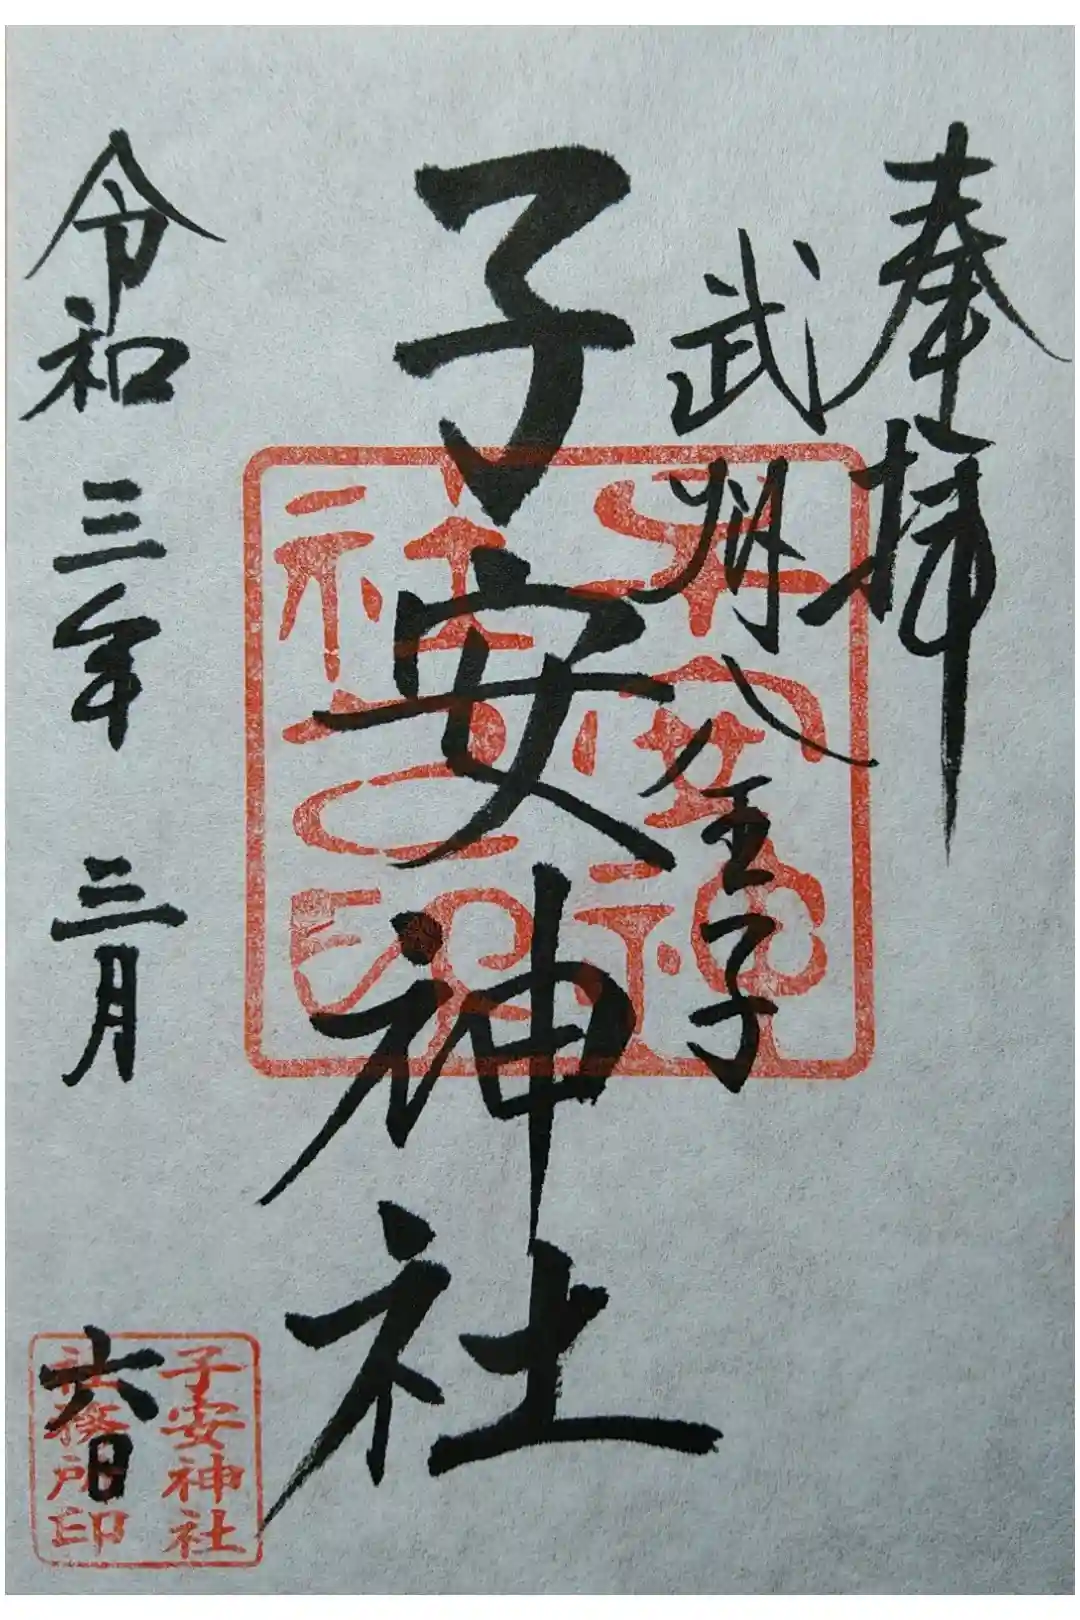 奉拝
武州八王子
子安神社
令和三年三月六日
子安神
社之印
子安神社
社務所印